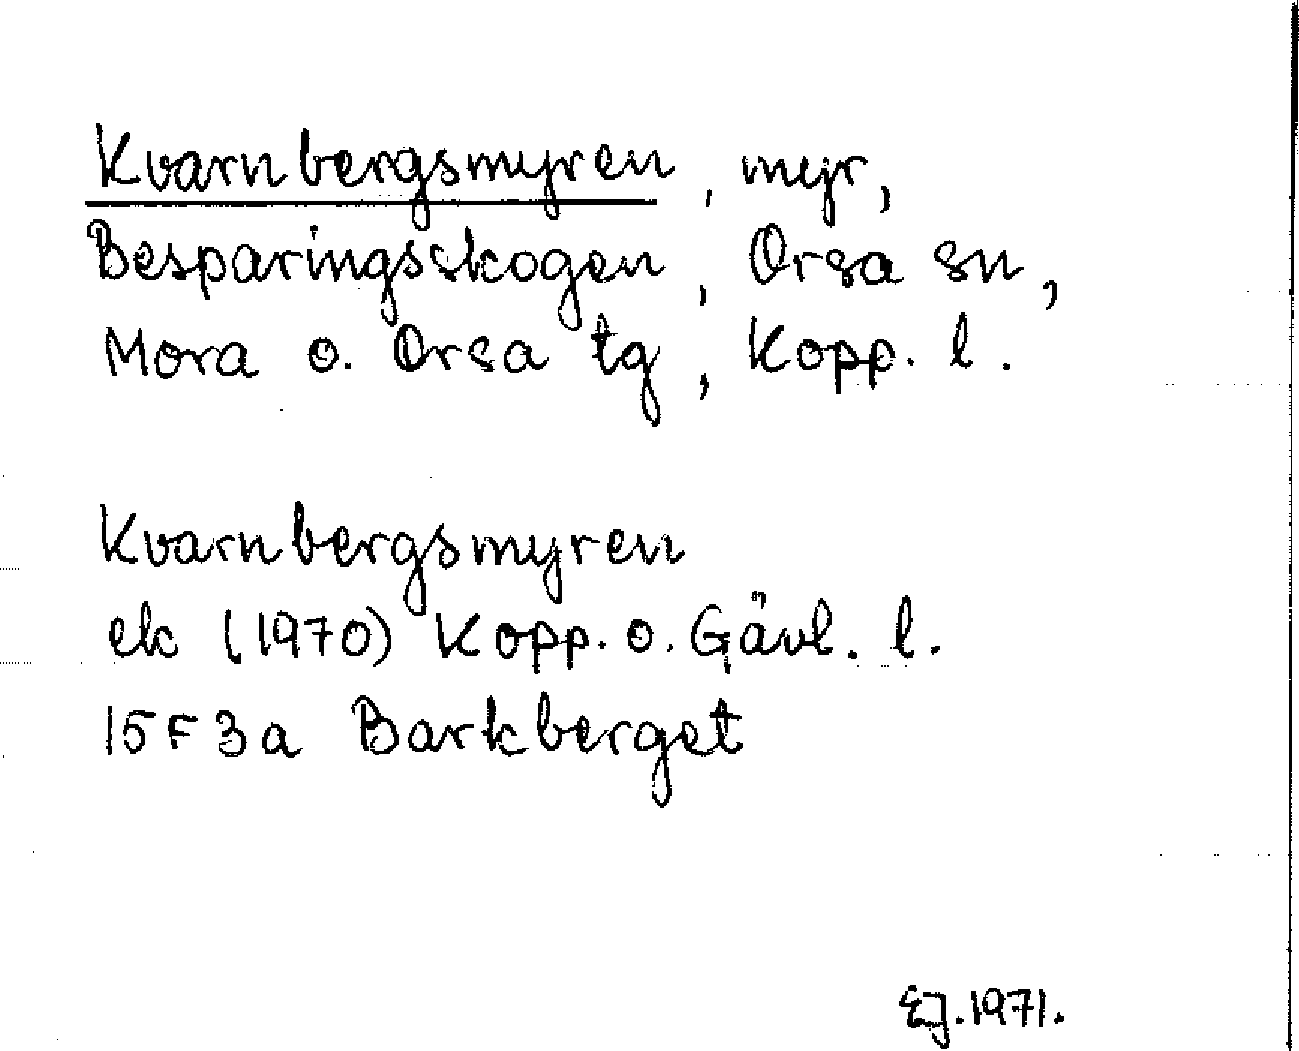 Kvarnbergsmyren, myr,
Besparingsskogen, Orsa sn,
Mora o. Orsa tg, Kopp. l.
Kvarnbergsmyren
ek (1970) Kopp. o. Gävl. l.
15F3a Barkberget
EJ. 1971.